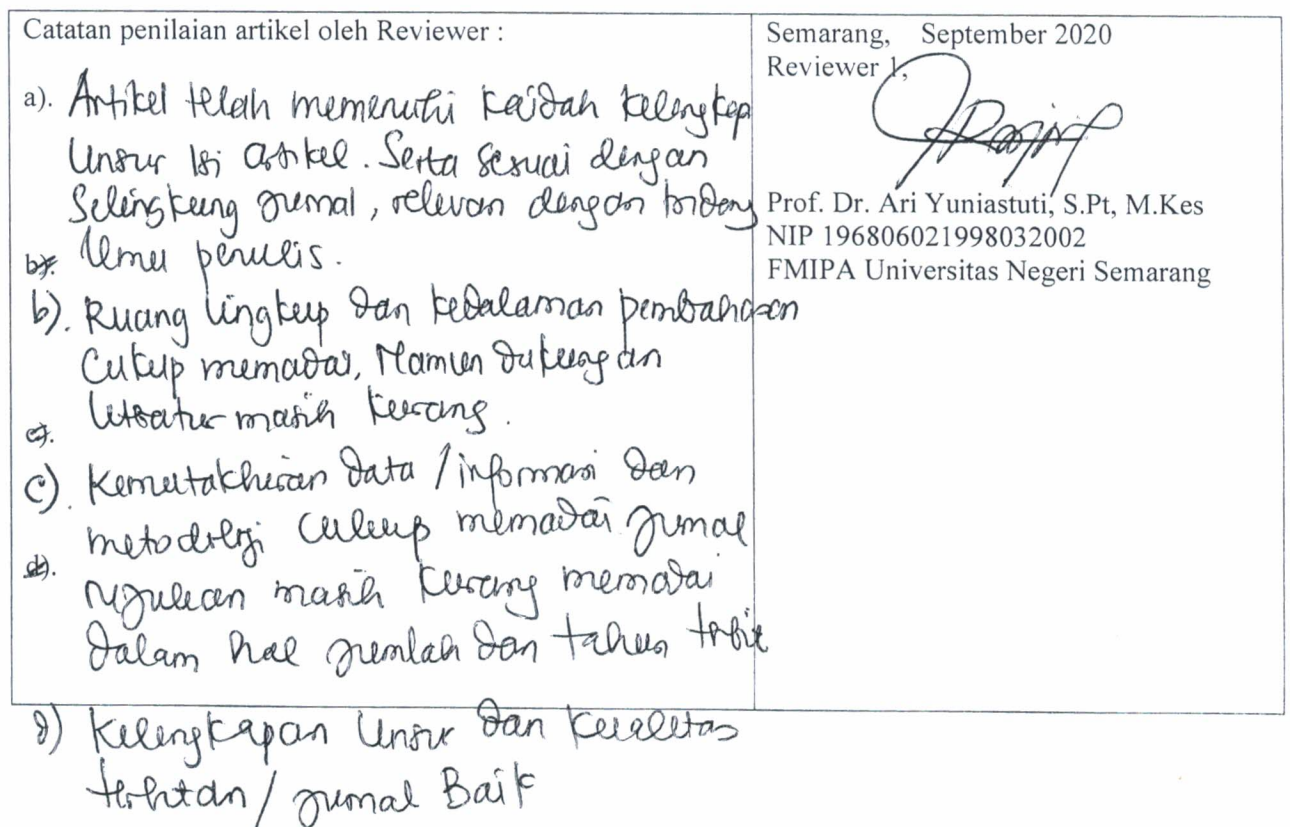 Catatan penilaian artikel oleh Reviewer :
a). Artikel telah memenuhi kaidah kelengkap
Unsur Isi artikel. Serta sesuai dengan
Selingkung jurnal, relevan dengan bidang
Ilmu penulis.
b).
b). Ruang lingkup dan kedalaman pembahasan
Cukup memadai, Namun dukungan
literatur masih kurang.
c).
c). Kemutakhiran data / informasi dan
metodologi cukup memadai jurnal
rujukan masih kurang memadai
d).
dalam hal jumlah dan tahun terbit
d) Kelengkapan Unsur dan kualitas
terbitan / jurnal Baik
Semarang, September 2020
Reviewer 1,
Prof. Dr. Ari Yuniastuti, S.Pt, M.Kes
NIP 196806021998032002
FMIPA Universitas Negeri Semarang